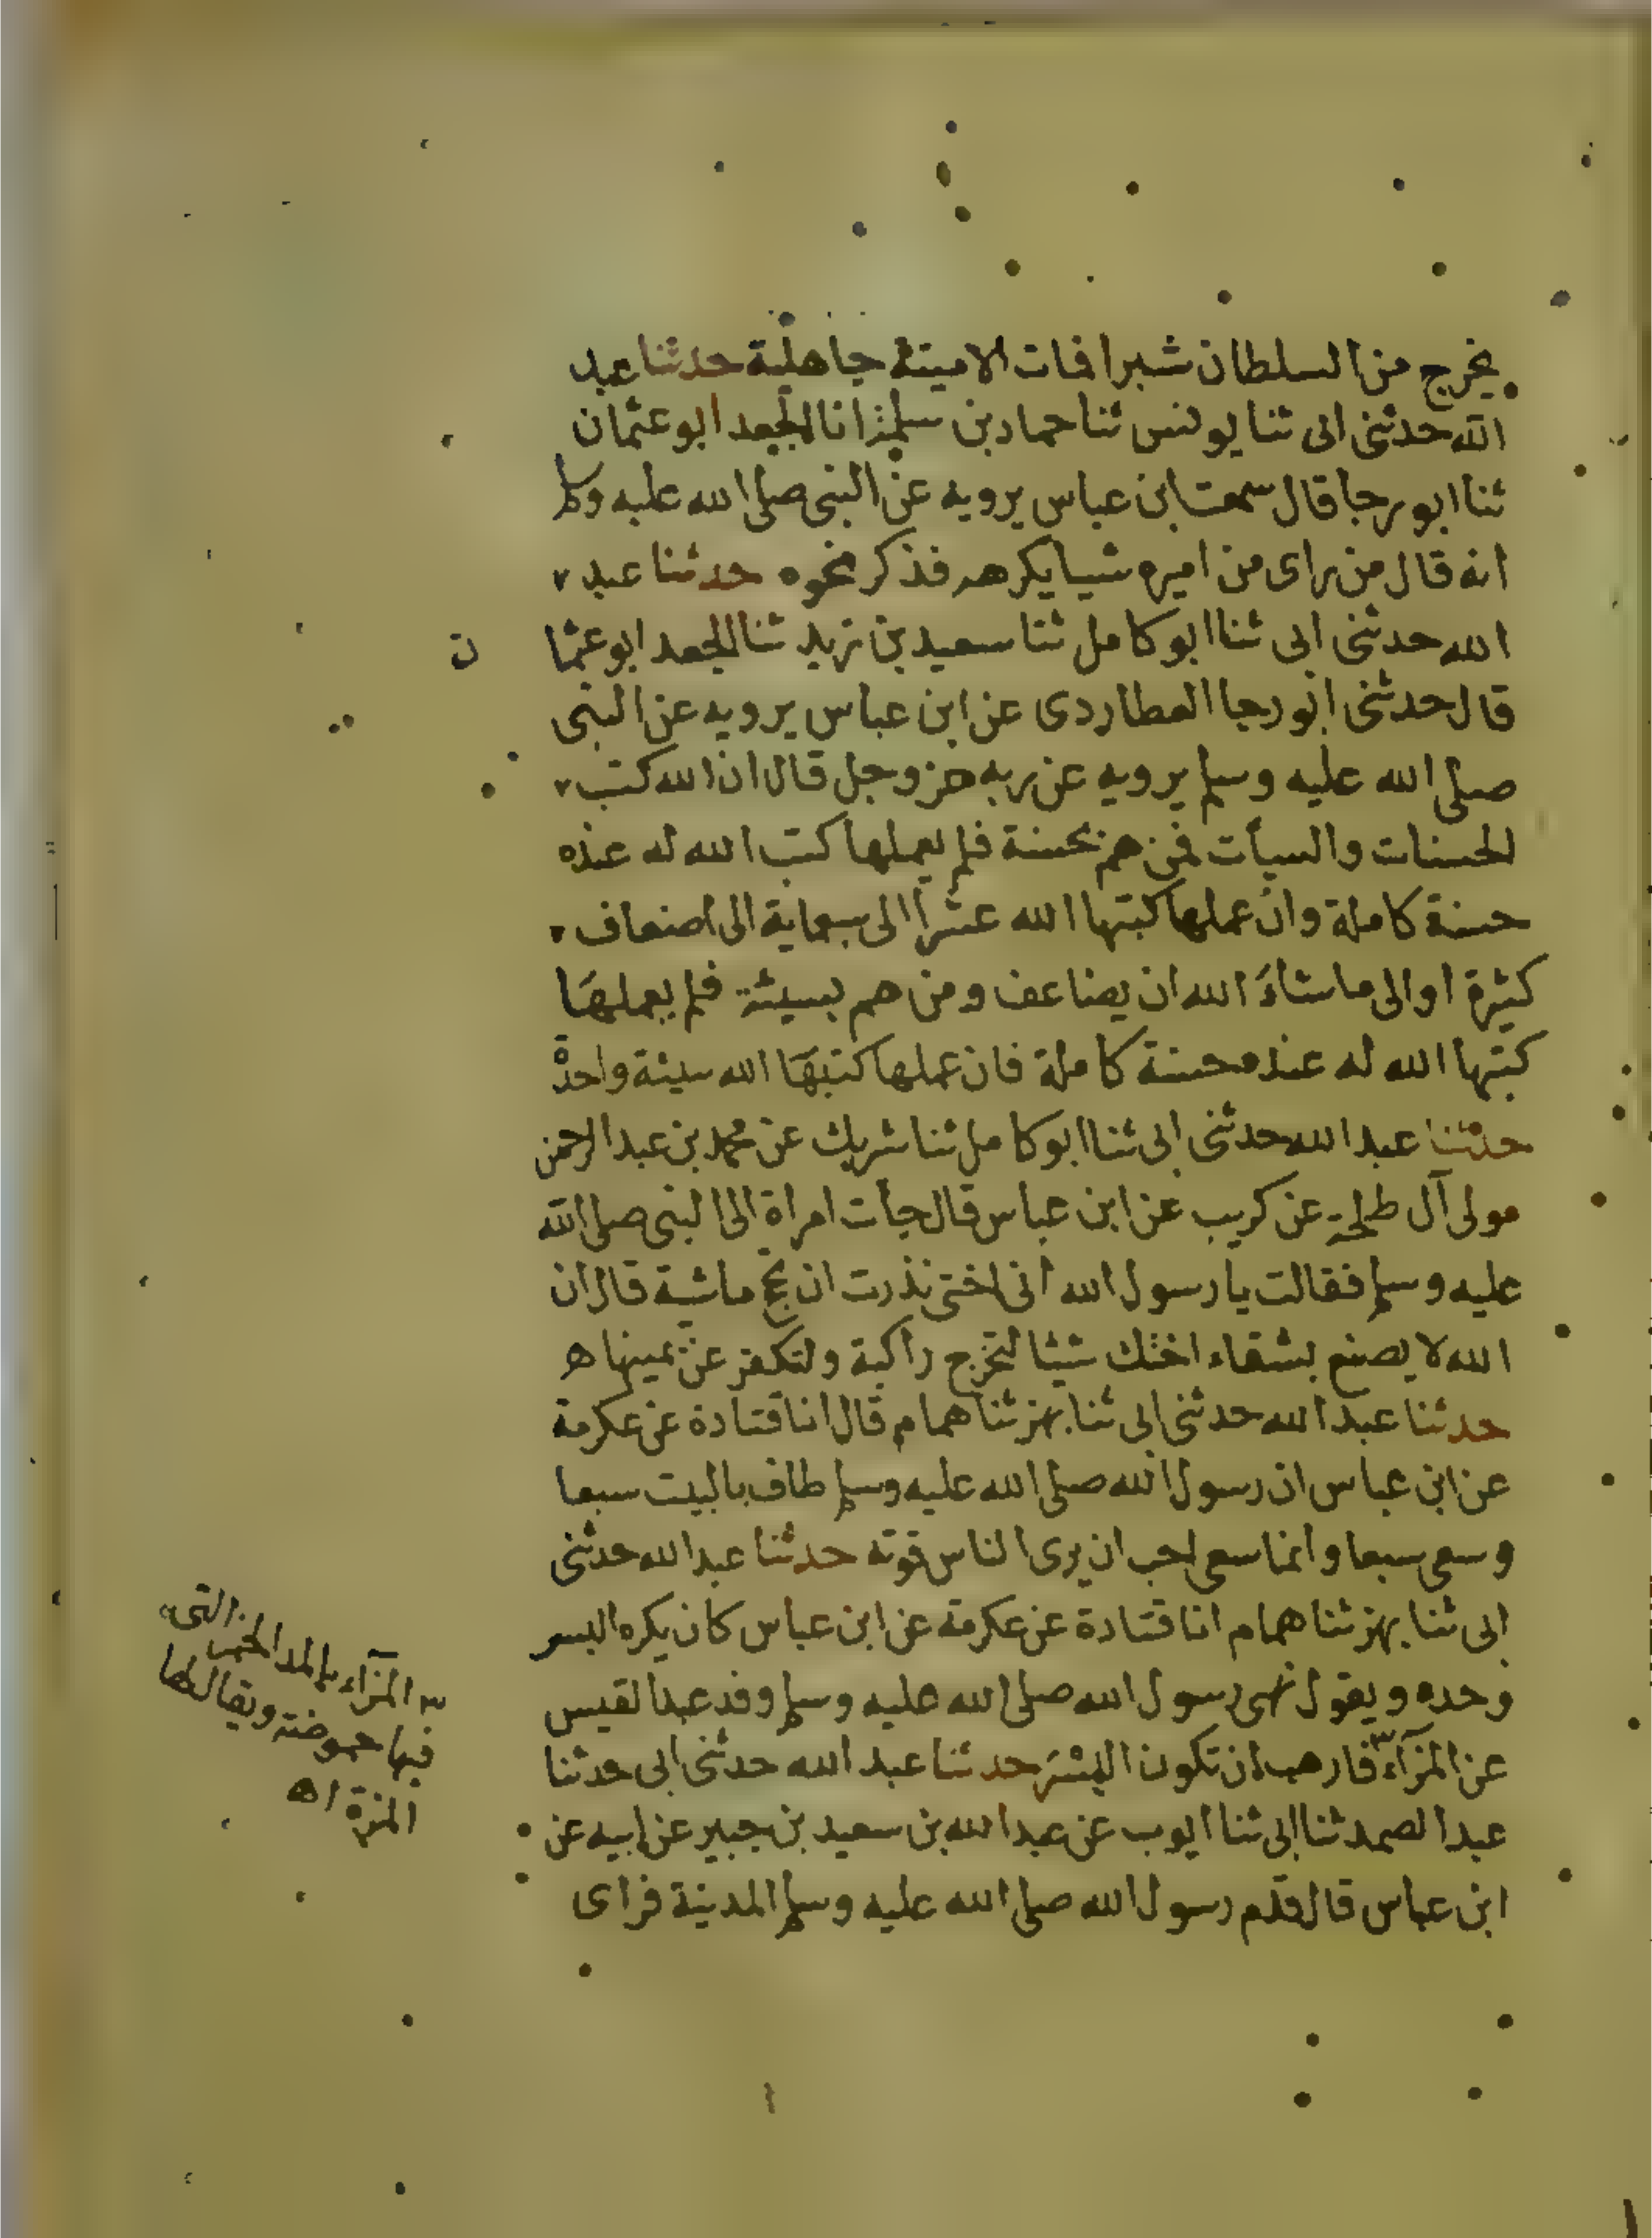 يخرج من السلطان شبرا فمات الا ميتة جاهلية حدثنا عبد
الله حدثنى ابى ثنا يونس ثنا حماد بن سلمة انا الجعد ابو عثمان
ثنا ابو رجا قال سمعت ابن عباس يرويه عن النبى صلى الله عليه وسلم
انه قال من راى من اميره شيا يكرهه فذكر نحوه حدثنا عبد
الله حدثنى ابى ثنا ابو كامل ثنا سعيد بن زيد ثنا الجعد ابو عثما ن
قال حدثنى ابو رجا العطاردى عن ابن عباس يرويه عن النبى
صلى الله عليه وسلم يرويه عن ربه عز وجل قال ان الله كتب
الحسنات والسيأت فمن هم بحسنة فلم يعملها كتب الله له عنده
حسنة كاملة وان عملها كتبها الله عشرا الى سبعماية الى اضعاف
كثيرة او الى ما شاءَ الله ان يضاعف ومن هم بسيئة فلم يعملهَا
كتبها الله له عنده حسنة كاملة فان عملها كتبهَا الله سيئة واحدة
حدثنا عبد الله حدثنى ابى ثنا ابو كامل ثنا شريك عن محمد بن عبد الرحمن
مولى آل طلحة عن كريب عن ابن عباس قال جأت امراة الى النبى صلى الله
عليه وسلم فقالت يا رسول الله انى اختى نذرت ان تحج ماشية قال ان
الله لا يصنع بشقاء اختك شيئا لتخرج راكبة ولتكفر عن يمينها ه
حدثنا عبد الله حدثنى ابى ثنا بهز ثنا همام قال انا قتادة عن عكرمة
عن ابن عباس ان رسول الله صلى الله عليه وسلم طاف بالبيت سبعا
وسعى سبعا وانما سعى احب ان يرى الناس قوته حدثنا عبد الله حدثنى
ابى ثنا بهز ثنا همام انا قتادة عن عكرمة عن ابن عباس كان يكره البسر
وحده ويقول نهى رسول الله صلى الله عليه وسلم وفد عبد القيس
عن المزآء فارهب ان تكون البسر حدثنا عبد الله حدثنى ابى حدثنا
عبد الصمد ثنا ابى ثنا ايوب عن عبد الله بن سعيد بن جبير عن ابيه عن
ابن عباس قال قدم رسول الله صلى الله عليه وسلم المدينة فراى
المزآء بالمد الخمر التى
فيها حموضة ويقال لها
المزة اه